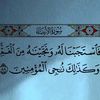 سُورَةُ الأَنبِيَاءِ
فَٱسْتَجَبْنَا لَهُۥ وَنَجَّيْنَٰهُ مِنَ ٱلْغَمِّ
وَكَذَٰلِكَ نُۨجِى ٱلْمُؤْمِنِينَ